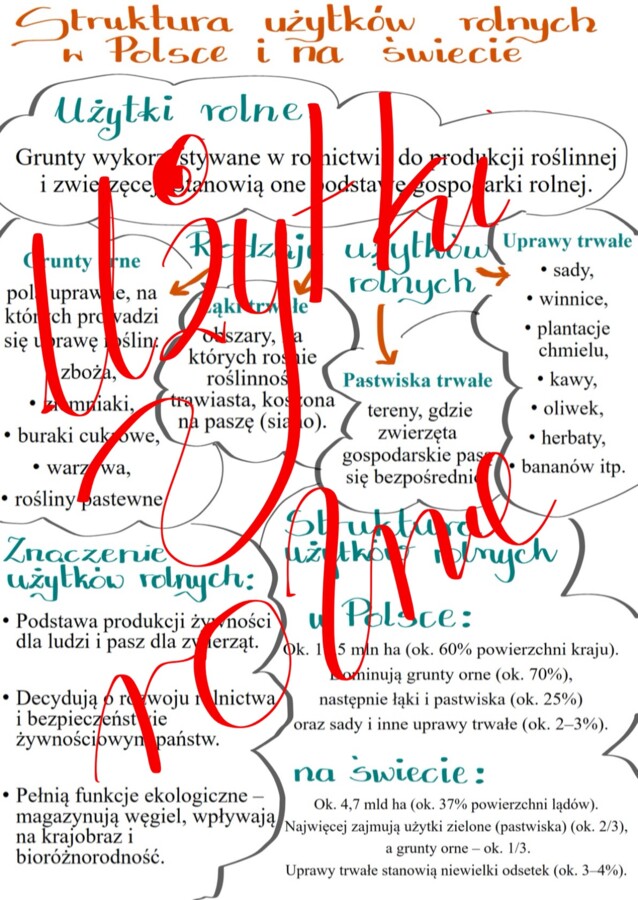 Struktura użytków rolnych
w Polsce i na świecie
Użytki rolne
Grunty wykorzystywane w rolnictwie do produkcji roślinnej
i zwierzęcej. Stanowią one podstawę gospodarki rolnej.
Użytki
rolne
Rodzaje użytków
rolnych
Grunty orne
pola uprawne, na
których prowadzi
się uprawę roślin:
zboża,
• ziemniaki,
• buraki cukrowe,
• warzywa,
• rośliny pastewne
Łąki trwałe
obszary, na
których rośnie
roślinność
trawiasta, koszona
na paszę (siano).
Pastwiska trwałe
tereny, gdzie
zwierzęta
gospodarskie pasą
się bezpośrednio
Uprawy trwałe
• sady,
• winnice,
• plantacje
chmielu,
• kawy,
• oliwek,
• herbaty,
• bananów itp.
Znaczenie
użytków rolnych:
• Podstawa produkcji żywności
dla ludzi i pasz dla zwierząt.
• Decydują o rozwoju rolnictwa
i bezpieczeństwie
żywnościowym państw.
• Pełnią funkcje ekologiczne –
magazynują węgiel, wpływają
na krajobraz i
bioróżnorodność.
Struktura
użytków rolnych
w Polsce:
Ok. mln ha (ok. 60% powierzchni kraju).
Dominują grunty orne (ok. 70%),
następnie łąki i pastwiska (ok. 25%)
oraz sady i inne uprawy trwałe (ok. 2–3%).
na świecie:
Ok. 4,7 mld ha (ok. 37% powierzchni lądów).
Najwięcej zajmują użytki zielone (pastwiska) (ok. 2/3),
a grunty orne – ok. 1/3.
Uprawy trwałe stanowią niewielki odsetek (ok. 3–4%).